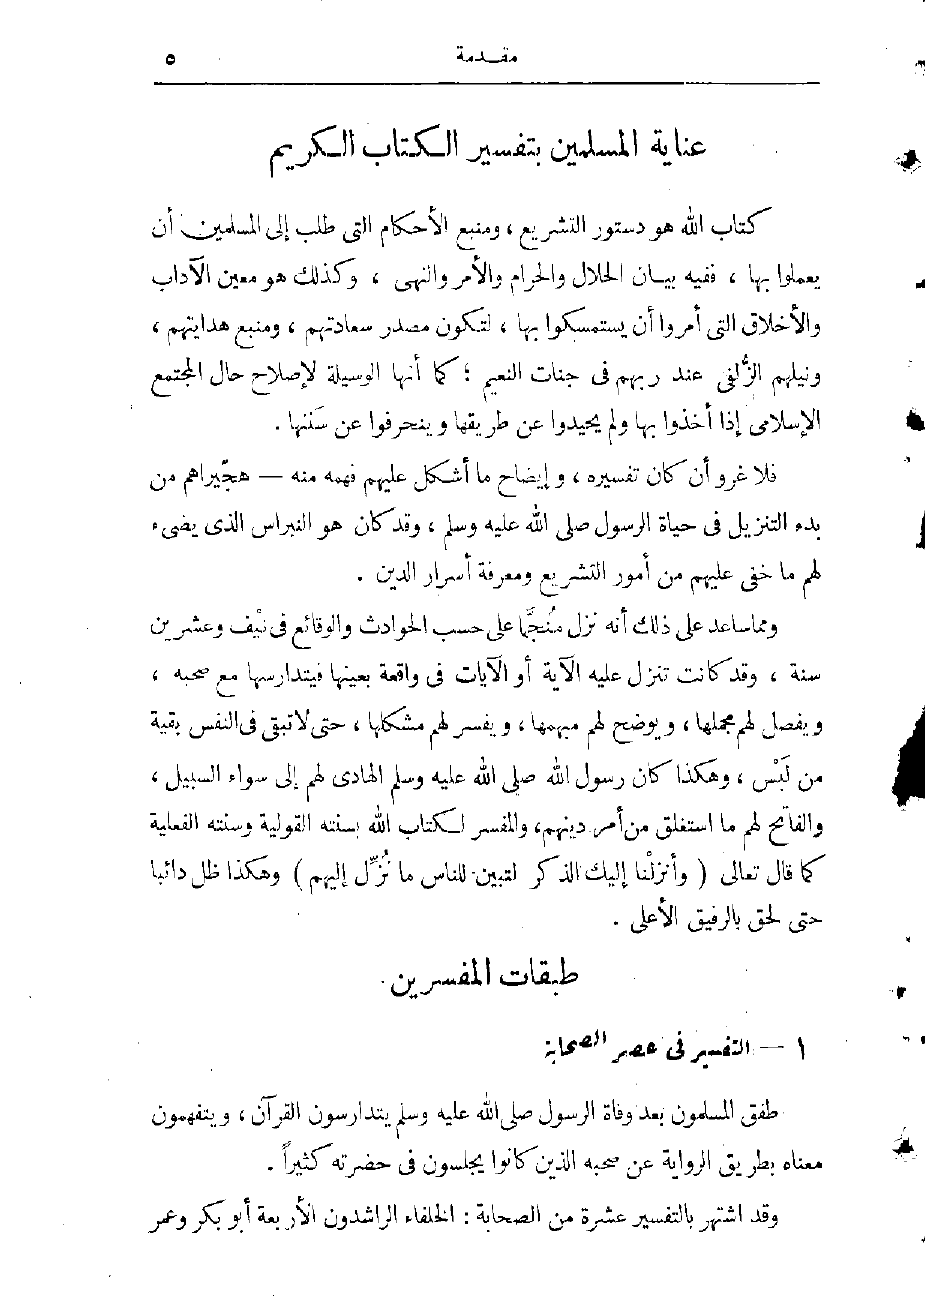 مقدمة ٥
عناية المسلمين بتفسير الكتاب الكريم
كتاب الله هو دستور التشريع ، ومنبع الأحكام التى طلب إلى المسلمين أن
يعملوا بها ، ففيه بيان الحلال والحرام والأمر والنهى ، وكذلك هو معين الآداب
والأخلاق التى أمروا أن يستمسكوا بها ، لتكون مصدر سعادتهم ، ومنبع هدايتهم ،
ونيلهم الزُّلفى عند ربهم فى جنات النعيم ؛ كما أنها الوسيلة لإصلاح حال المجتمع
الإسلامى إذا أخذوا بها ولم يحيدوا عن طريقها وينحرفوا عن سَننها .
فلا غرو أن كان تفسيره ، وإيضاح ما أشكل عليهم فهمه منه — هجّيراهم من
بدء التنزيل فى حياة الرسول صلى الله عليه وسلم ، وقد كان هو النبراس الذى يضىء
لهم ما خفى عليهم من أمور التشريع ومعرفة أسرار الدين .
ومما ساعد على ذلك أنه نزل مُنجَّما على حسب الحوادث والوقائع فى نيْف وعشرين
سنة ، وقد كانت تنزل عليه الآية أو الآيات فى واقعة بعينها فيتدارسها مع صحبه ،
ويفصل لهم مجملها ، ويوضح لهم مبهمها ، ويفسر لهم مشكلها ، حتى لا تبقى فى النفس بقية
من لَبْس ، وهكذا كان رسول الله صلى الله عليه وسلم الهادى لهم إلى سواء السبيل ،
والفاتح لهم ما استغلق من أمر دينهم، والمفسر لكتاب الله بسنته القولية وسنته الفعلية
كما قال تعالى ( وأنزلْنا إليك الذكر لتبين للناس ما نُزِّل إليهم ) وهكذا ظل دائبا
حتى لحق بالرفيق الأعلى .
طبقات المفسرين
١ — التفسير فى عصر الصحابة
طفق المسلمون بعد وفاة الرسول صلى الله عليه وسلم يتدارسون القرآن ، ويتفهمون
معناه بطريق الرواية عن صحبه الذين كانوا يجلسون فى حضرته كثيراً .
وقد اشتهر بالتفسير عشرة من الصحابة : الخلفاء الراشدون الأربعة أبو بكر وعمر